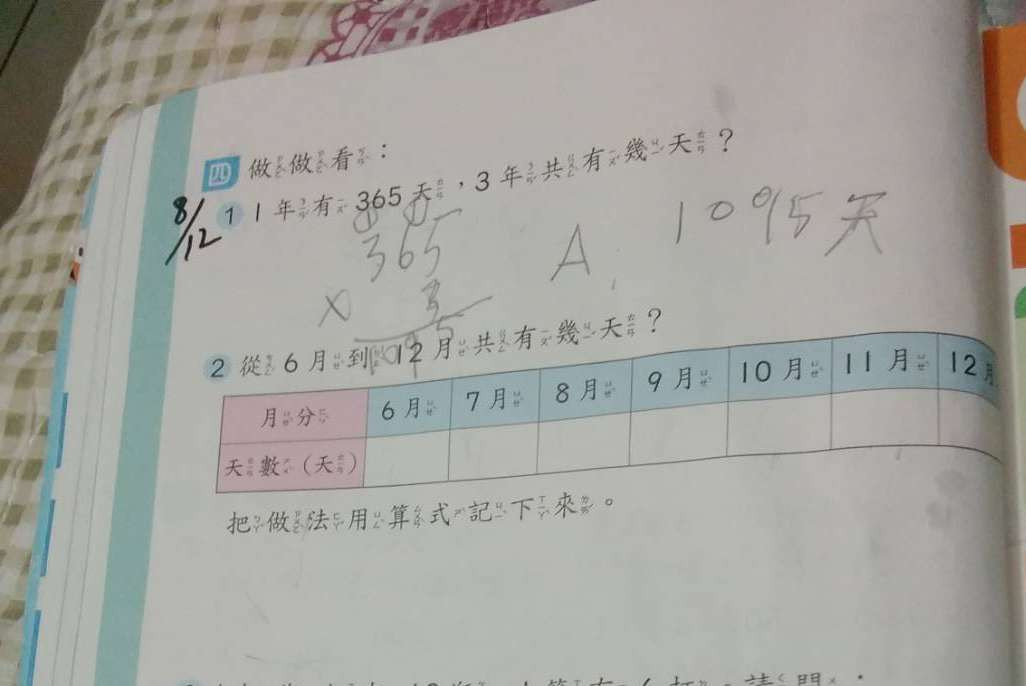 四 做做看：
8/12
1 1年有365天，3年共有幾天？
365
× 3
1095
A 1095天
2 從6月到12月共有幾天？
月分 6月 7月 8月 9月 10月 11月 12月
天數（天）
把做法用算式記下來。